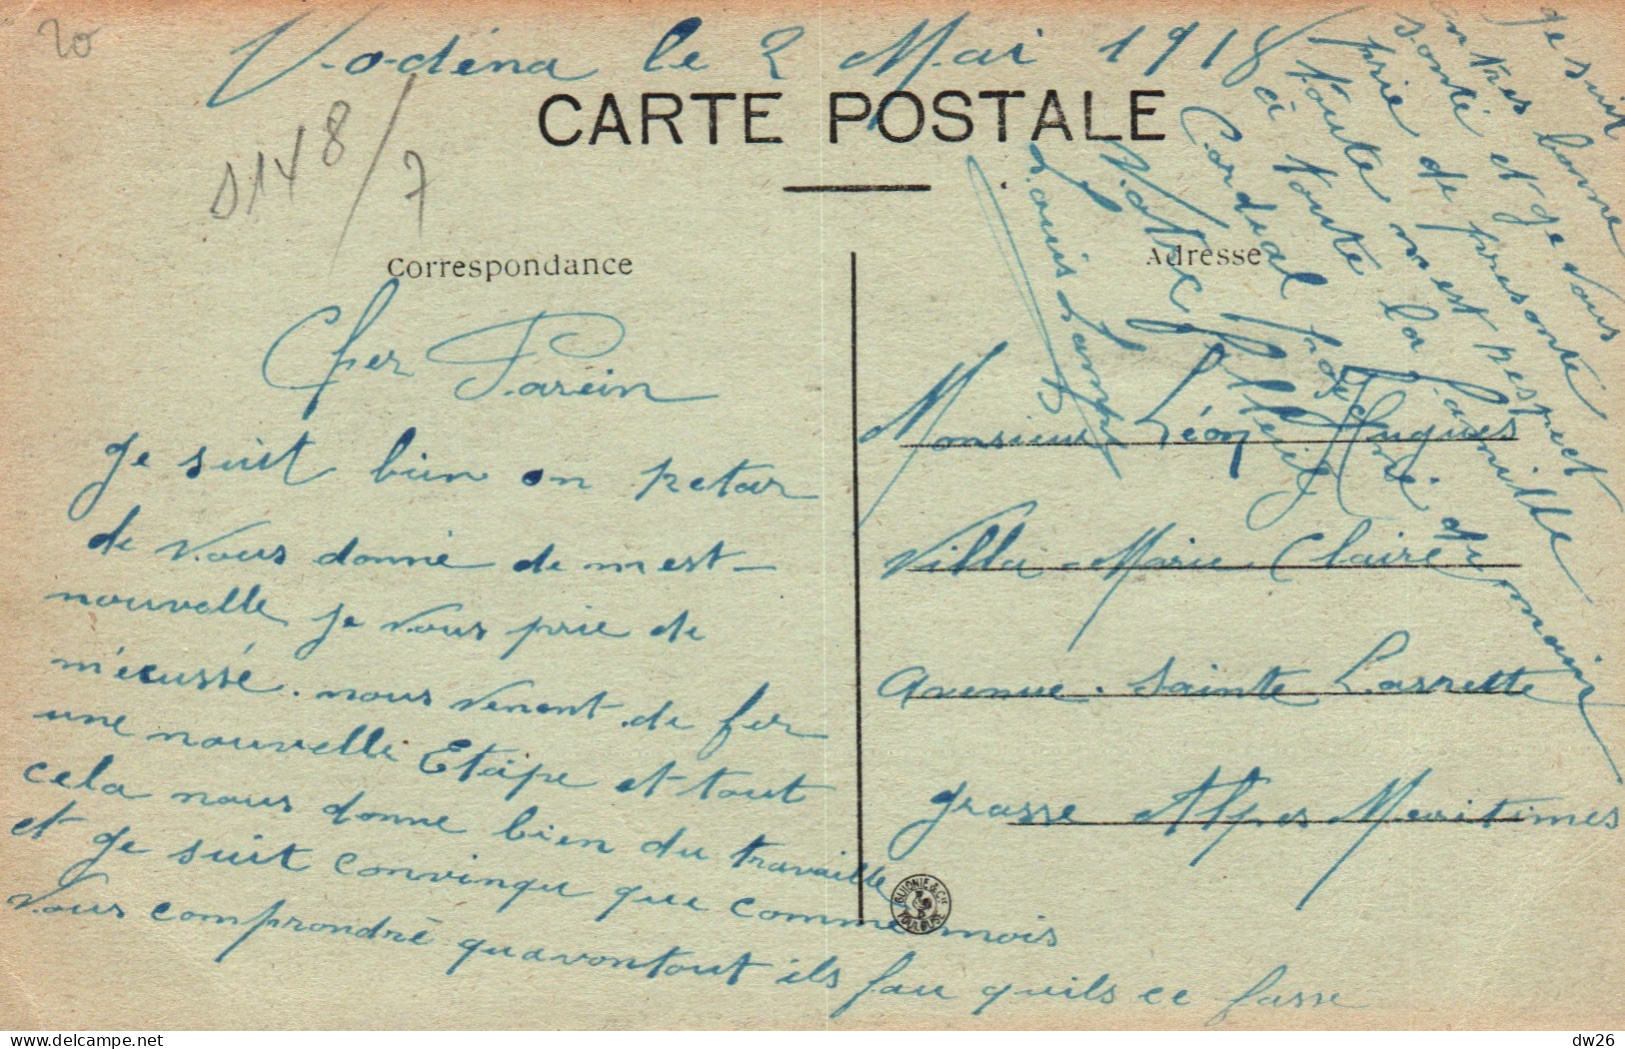 20
Vodéna le 2 Mai 1918
CARTE POSTALE
8148/7
Correspondance
Adresse
Cher Parein
Je suit bien on retar
de vous donné de mest
nouvelle je vous prie de
m'ecussé. nous venont de fer
une nouvelle Etape et tout
cela nous donne bien du travaille
et je suit convinqu que comme mois
vous comprondré quavontout ils fau quils ce fasse
Je suit
en tres bonne
santé et je vous
prie de presonté
toute mest respect
à toute la famille
Cordial poigné du main
Votre filleil
Louis Lamp
Monsieur Léon Hugues
Villa Marie Claire
Avenue Sainte Lorette
Grasse Alpes Maritimes
GUIONIE & Cie
TOULOUSE
dw26